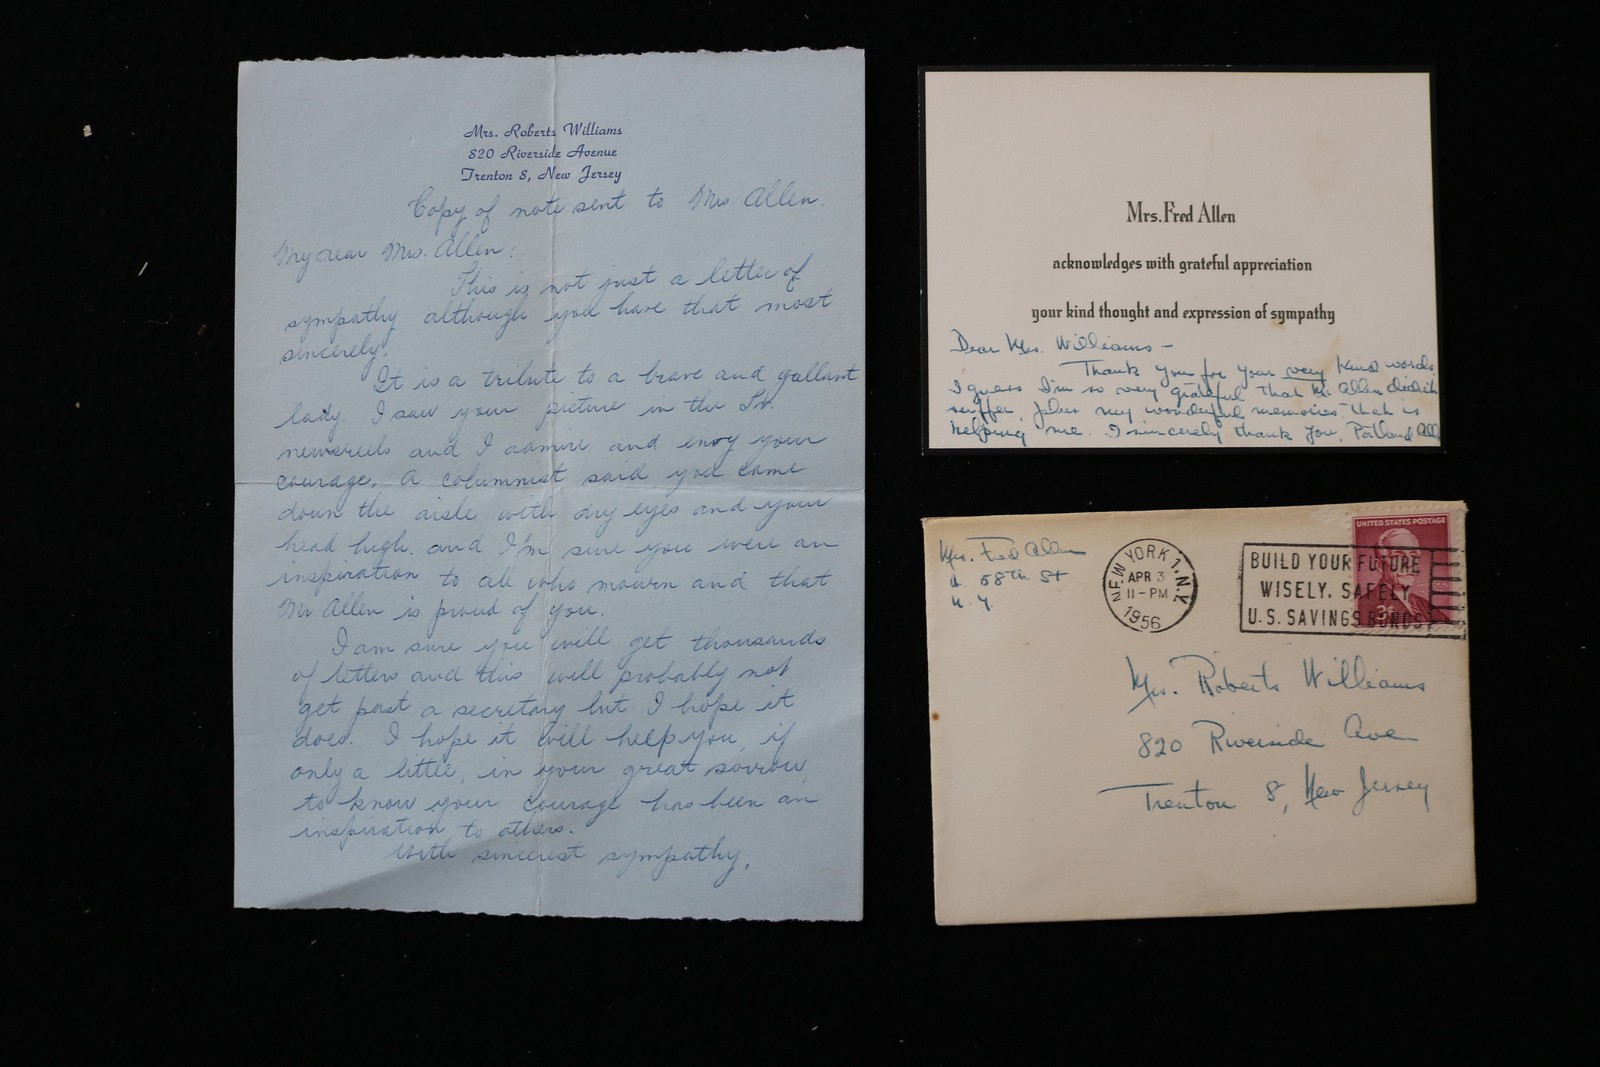 Mrs. Roberts Williams
820 Riverside Avenue
Trenton 8, New Jersey
Copy of note sent to Mrs Allen.
My dear Mrs. Allen:
This is not just a letter of
sympathy although you have that most
sincerely.
It is a tribute to a brave and gallant
lady. I saw your picture in the T.v.
newsreels and I admire and envy your
courage. A columnist said you came
down the aisle with dry eyes and your
head high, and I'm sure you were an
inspiration to all who mourn and that
Mr Allen is proud of you.
I am sure you will get thousands
of letters and this will probably not
get past a secretary but I hope it
does. I hope it will help you, if
only a little, in your great sorrow,
to know your courage has been an
inspiration to others.
With sincerest sympathy,
Mrs. Fred Allen
acknowledges with grateful appreciation
your kind thought and expression of sympathy
Dear Mrs. Williams –
Thank you for your very kind words.
I guess I'm so very grateful that Mr. Allen didn't
suffer, plus my wonderful memories that is
helping me. I sincerely thank you, Portland All
Mrs. Fred Allen
W. 58th St
N.Y.
NEW YORK 1, N.Y.
APR 3
11-PM
1956
BUILD YOUR FUTURE
WISELY, SAFELY
U.S. SAVINGS BONDS
UNITED STATES POSTAGE
3¢
Mrs. Roberts Williams
820 Riverside Ave
Trenton 8, New Jersey